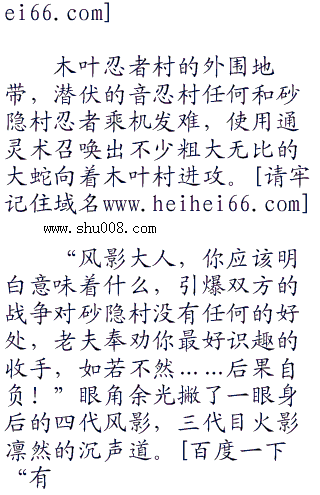 ei66.com]
木叶忍者村的外围地
带，潜伏的音忍村任何和砂
隐村忍者乘机发难，使用通
灵术召唤出不少粗大无比的
大蛇向着木叶村进攻。[请牢
记住域名www.heihei66.com]
www.shu008.com
“风影大人，你应该明
白意味着什么，引爆双方的
战争对砂隐村没有任何的好
处，老夫奉劝你最好识趣的
收手，如若不然……后果自
负！”眼角余光撇了一眼身
后的四代风影，三代目火影
凛然的沉声道。[百度一下
“有